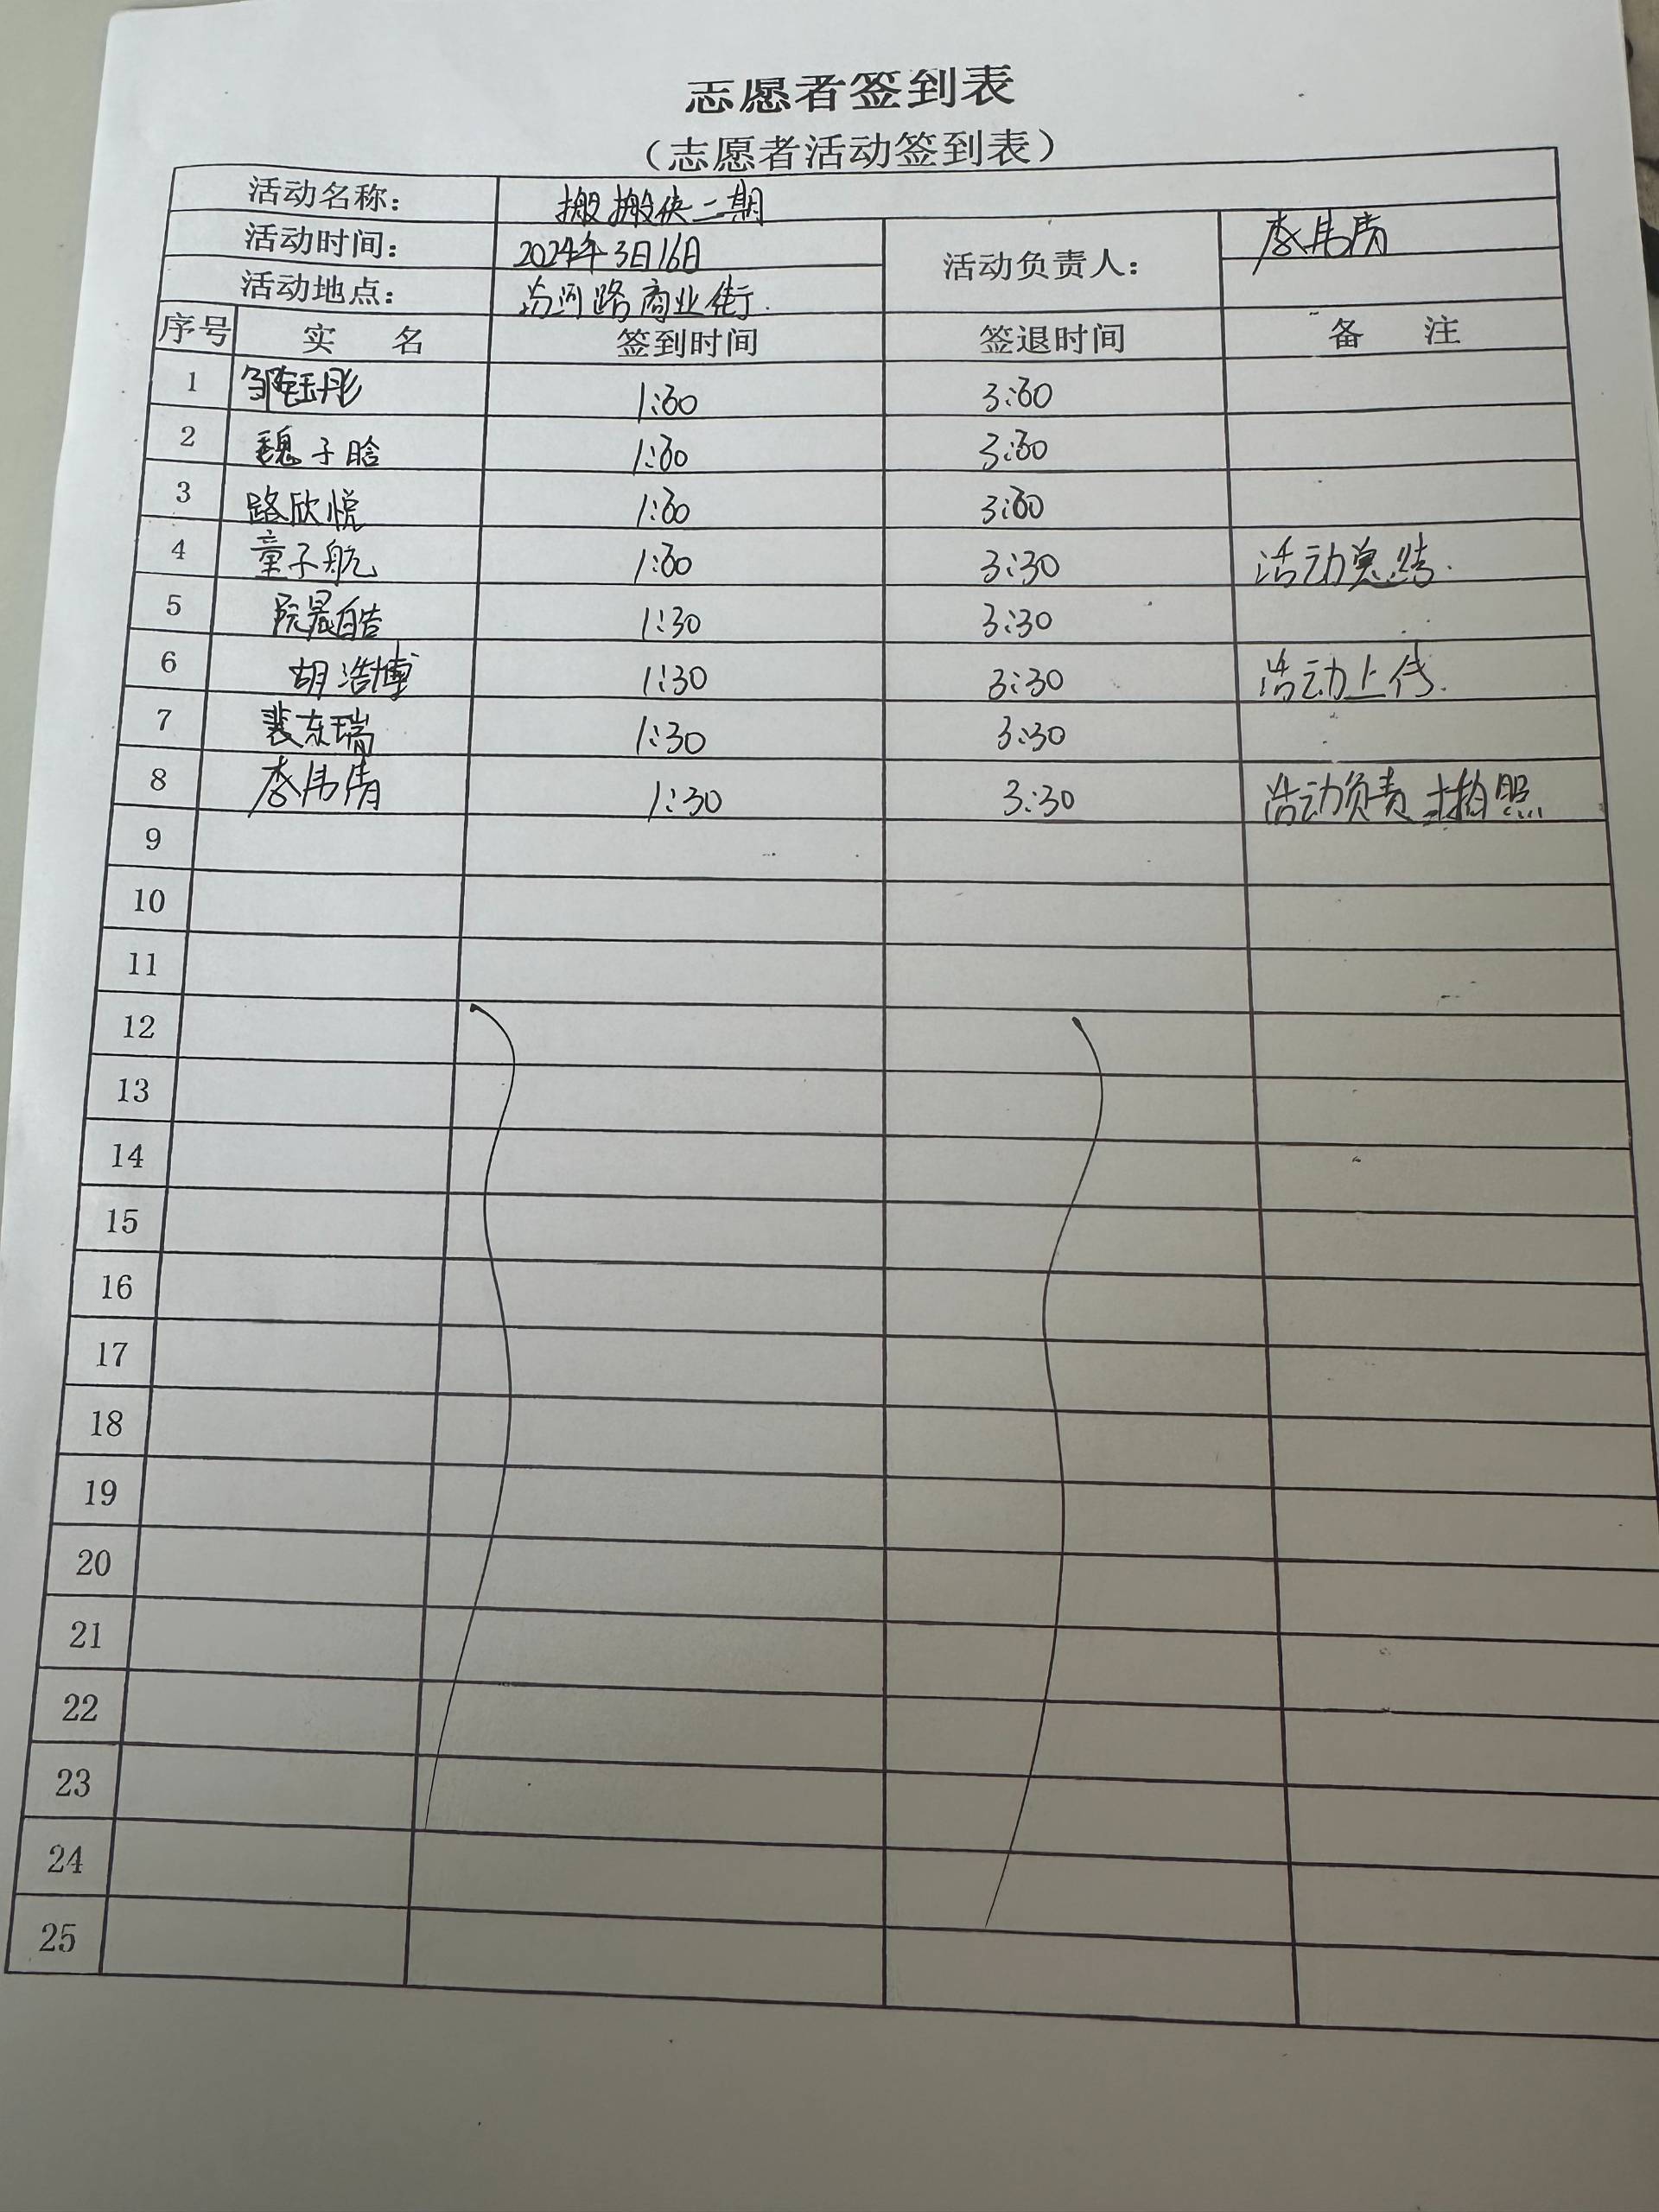 志愿者签到表
（志愿者活动签到表）
活动名称： 搬搬侠二期
活动时间： 2024年3日16日 活动负责人： 李伟倩
活动地点： 汾河路商业街.
序号 实 名 签到时间 签退时间 备 注
1 邹钰彤 1:30 3:30
2 魏子晗 1:30 3:30
3 路欣悦 1:30 3:30
4 童子航 1:30 3:30 活动总结.
5 阮晟皓 1:30 3:30
6 胡浩博 1:30 3:30 活动上传.
7 裴东瑞 1:30 3:30
8 李伟倩 1:30 3:30 活动负责+拍照
9
10
11
12
13
14
15
16
17
18
19
20
21
22
23
24
25